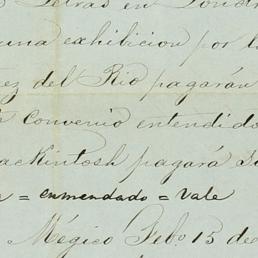 Letras en Londr
una exhibicion por l
ez del Rio pagarán
convenio entendido
ackintosh pagará s
= enmendado = Vale
Mégico Feb.o 15 de